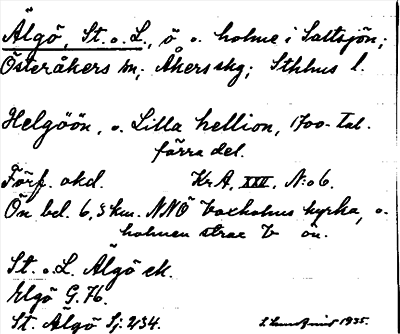 Älgö, St. o. L., ö o. holme i Saltsjön;
Österåkers sn; Åkers skg; Sthlms l.
Helgöön, o. Lilla hellion, 1700-tal.
förra del.
Förf. okd. Kr A, XXV, N:o 6.
Ön bel. 6,5 km. NNÖ Vaxholms kyrka, o.
holmen strax V ön.
St. o. L. Älgö ek.
Elgö G. 76.
St. Älgö Sj. 234.
1935.